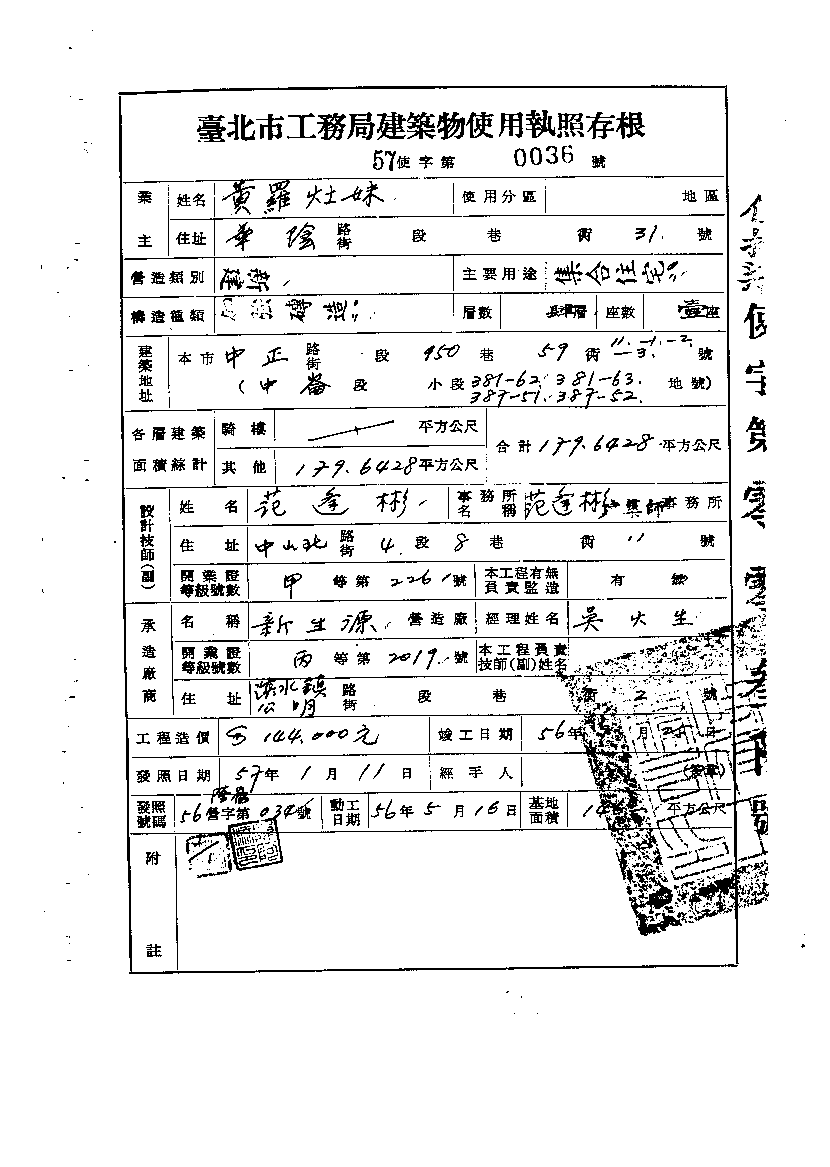 臺北市工務局建築物使用執照存根
57使字第 0036 號
業主 姓名 黃羅灶妹 使用分區 地區
住址 華陰 路街 段 巷 衖 31 號
營造類別 主要用途 集合住宅
構造種類 磚造 層數 層 座數 壹座
建築地址 本市 中正 路街 段 950 巷 59 衖 號
(中崙 段 小段 381-62. 381-63. 地號)
387-51. 387-52.
各層建築面積總計 騎樓 平方公尺 合計 179.6428 平方公尺
其他 179.6428 平方公尺
設計技師(副) 姓名 范逢彬 事務所名稱 范逢彬建築師事務所
住址 中山北 路街 4 段 8 巷 衖 11 號
開業證等級號數 甲 等第 2261 號 本工程有無負責監造 有 無
承造廠商 名稱 新生源 營造廠 經理姓名 吳火生
開業證等級號數 丙 等第 2019 號 本工程負責技師(副)姓名
住址 淡水鎮公明 路街 段 巷 衖 2 號
工程造價 144,000元 竣工日期 56年 月 日
發照日期 57年 1月 11日 經手人 (簽章)
發照號碼 56 營字第 034 號 動工日期 56年 5月 16日 基地面積 平方公尺
附註
使字第零零叁